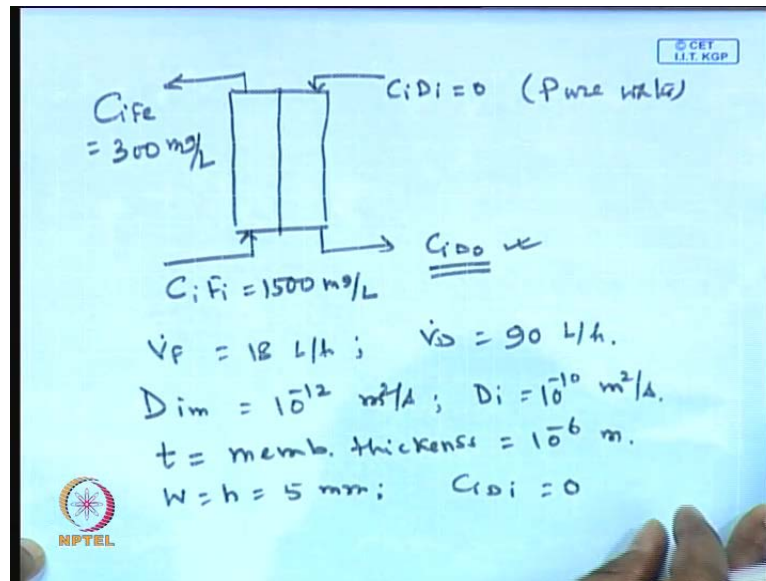 © CET
I.I.T. KGP
CiDi = 0 (Pure water)
CiFe
= 300 mg/L
CiDo
CiFi = 1500 mg/L
V̇F = 18 L/h ; V̇D = 90 L/h.
Dim = 10⁻¹² m²/s ; Di = 10⁻¹⁰ m²/s.
t = memb. thickenss = 10⁻⁶ m.
W = h = 5 mm ; CiDi = 0
NPTEL